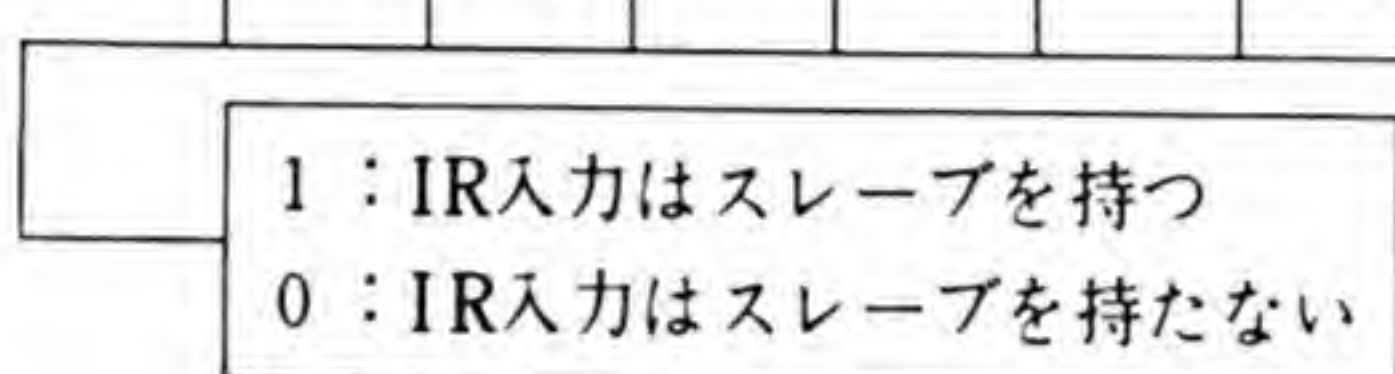 1：IR入力はスレーブを持つ
0：IR入力はスレーブを持たない